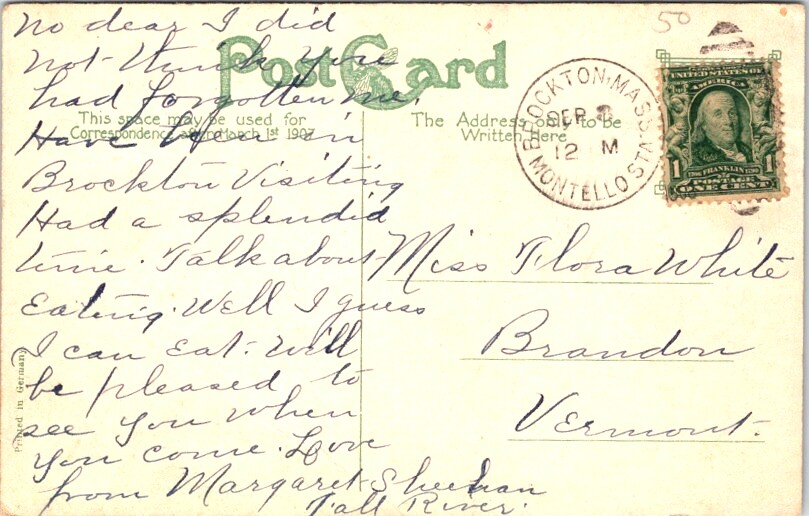 No dear I did
not think you
had forgotten me.
Have been in
Brockton Visiting
Had a splendid
time. Talk about
Eating. Well I guess
I can Eat. Will
be pleased to
see you when
you come. Love
from Margaret Sheehan
Fall River.
Post Card
This space may be used for
Correspondence after March 1st 1907
The Address only to be
Written Here
50
BROCKTON, MASS.
SEP
12 M
MONTELLO STA.
UNITED STATES OF
AMERICA
1 FRANKLIN 1
POSTAGE
ONE CENT
Miss Flora White
Brandon
Vermont.
Printed in Germany